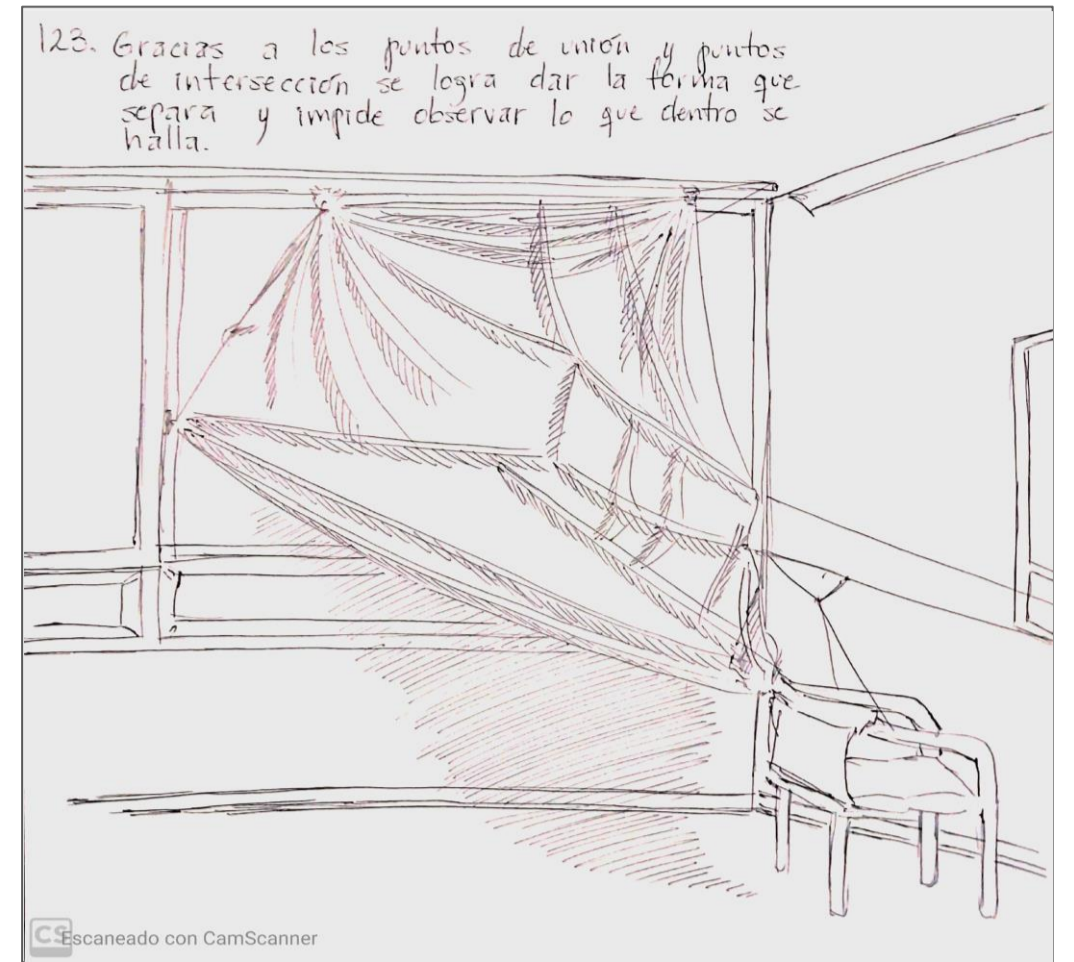 123. Gracias a los puntos de unión y puntos
de intersección se logra dar la forma que
separa y impide observar lo que dentro se
halla.
CS Escaneado con CamScanner